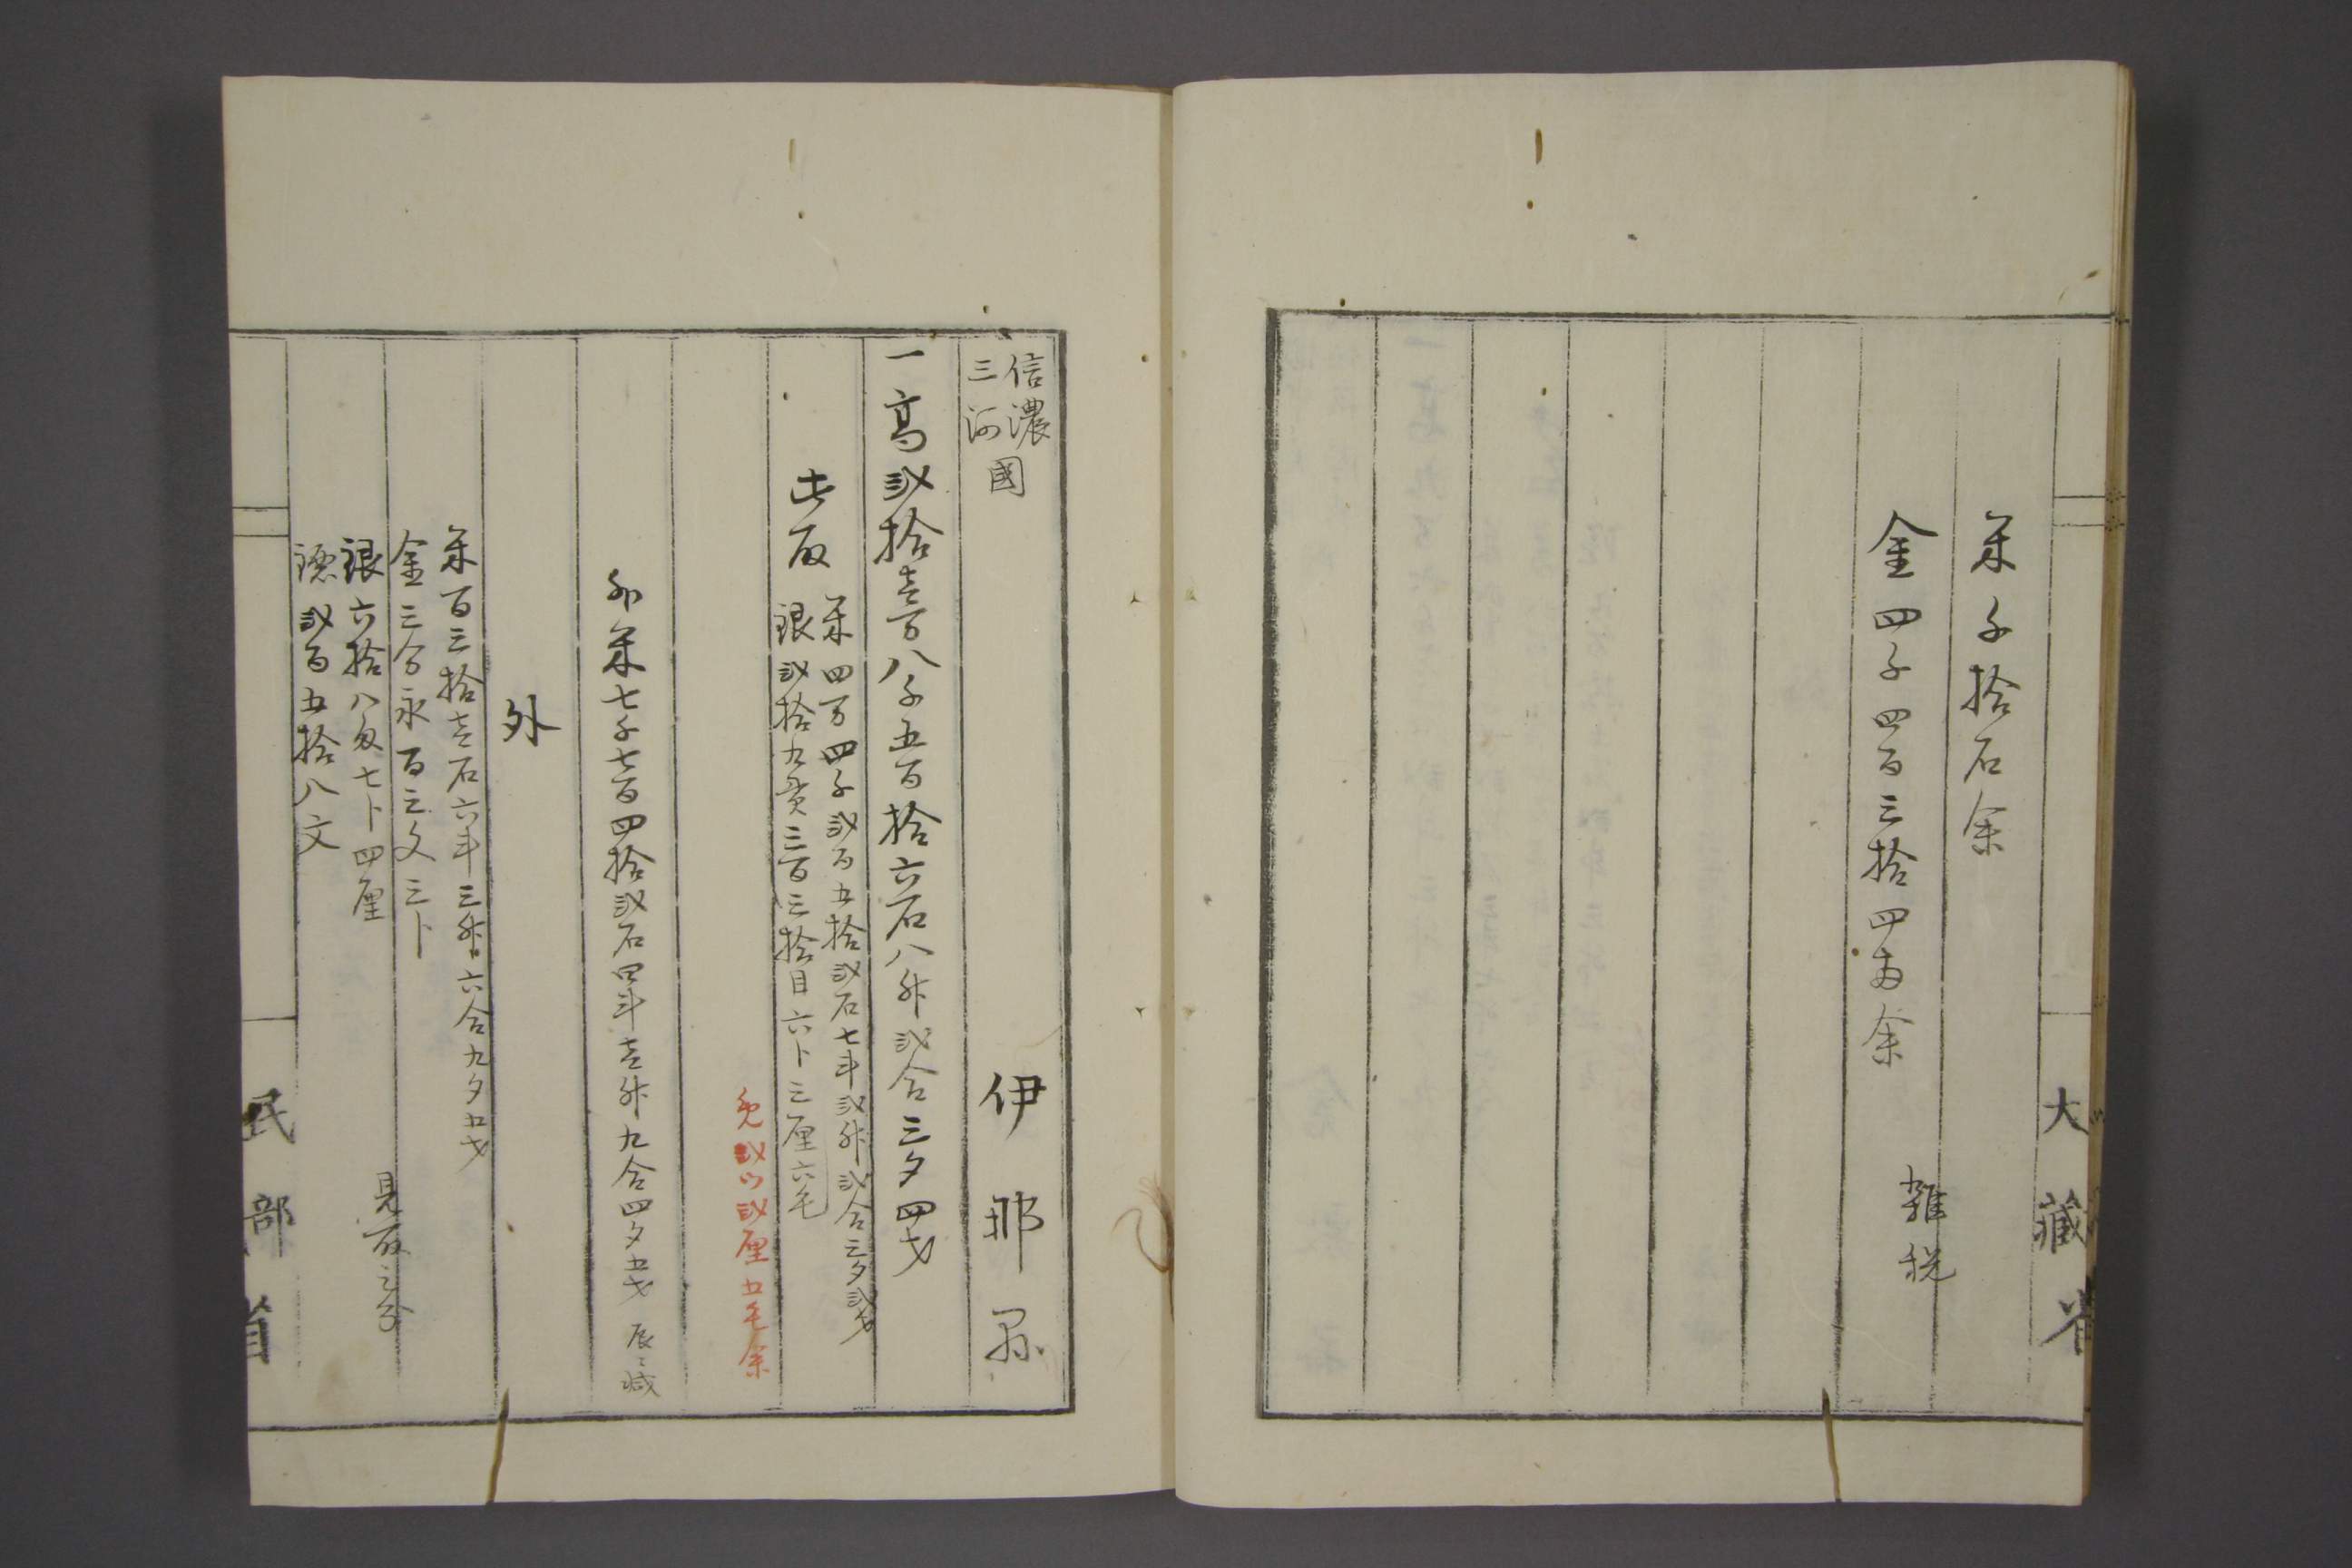 大藏省
米千拾石余
金四千四百三拾四両余
雑税
信濃
三河
國
伊那县
一高弐拾壱万八千五百拾六石八升弐合三夕四才
此取
米四万四千弐百五拾弐石七斗弐升弐合三夕弐才
銀弐拾九貫三百三拾目六卜三厘六毛
免弐ツ弐厘五毛余
外米七千七百四拾弐石四斗壱升九合四夕五才 辰減
外
米百三拾壱石六斗三升六合九夕五才
金三分永百三文三卜
銀六拾八匁七卜四厘
見取之分
鐚弐百五拾八文
民部省